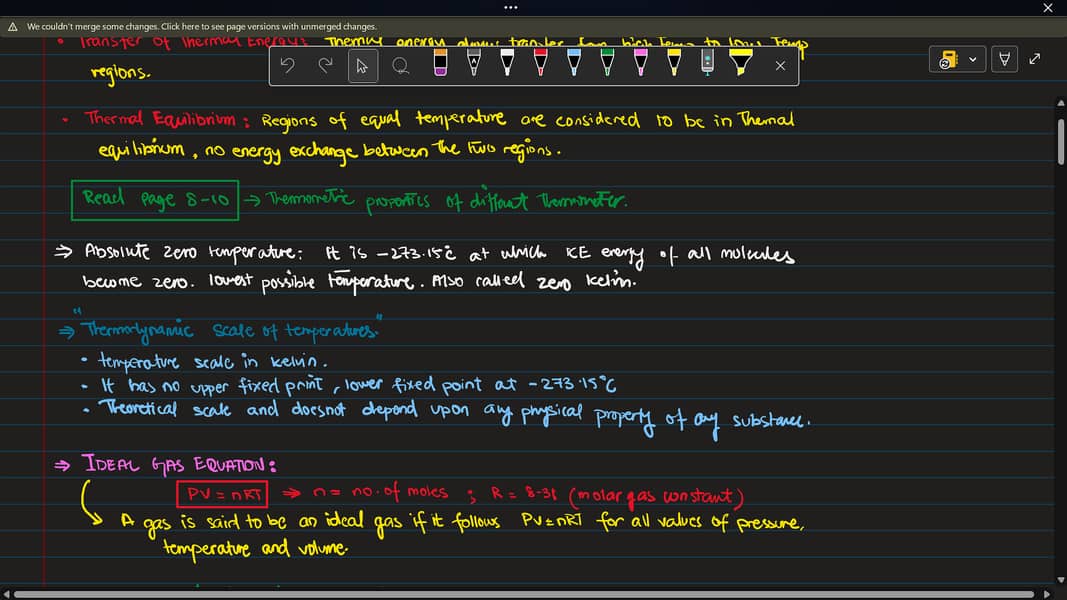 We couldn't merge some changes. Click here to see page versions with unmerged changes.
• Transfer of Thermal Energy: Thermal energy always transfer from high Temp to low Temp
regions.
• Thermal Equilibrium: Regions of equal temperature are considered to be in Thermal
equilibrium, no energy exchange between the two regions.
Read page 8-10 → Thermometric properties of diffarent thermometer.
⇒ Absolute zero temperature: It is -273.15°C at which KE energy of all molecules
become zero. lowest possible temperature. Also called zero kelvin.
⇒ "Thermodynamic scale of temperatures."
• temperature scale in kelvin.
• It has no upper fixed point, lower fixed point at -273.15°C
• Theoretical scale and doesnot depend upon any physical property of any substance.
⇒ IDEAL GAS EQUATION:
PV = nRT ⇒ n = no. of moles ; R = 8.31 (molar gas constant)
A gas is said to be an ideal gas if it follows PV=nRT for all values of pressure,
temperature and volume.